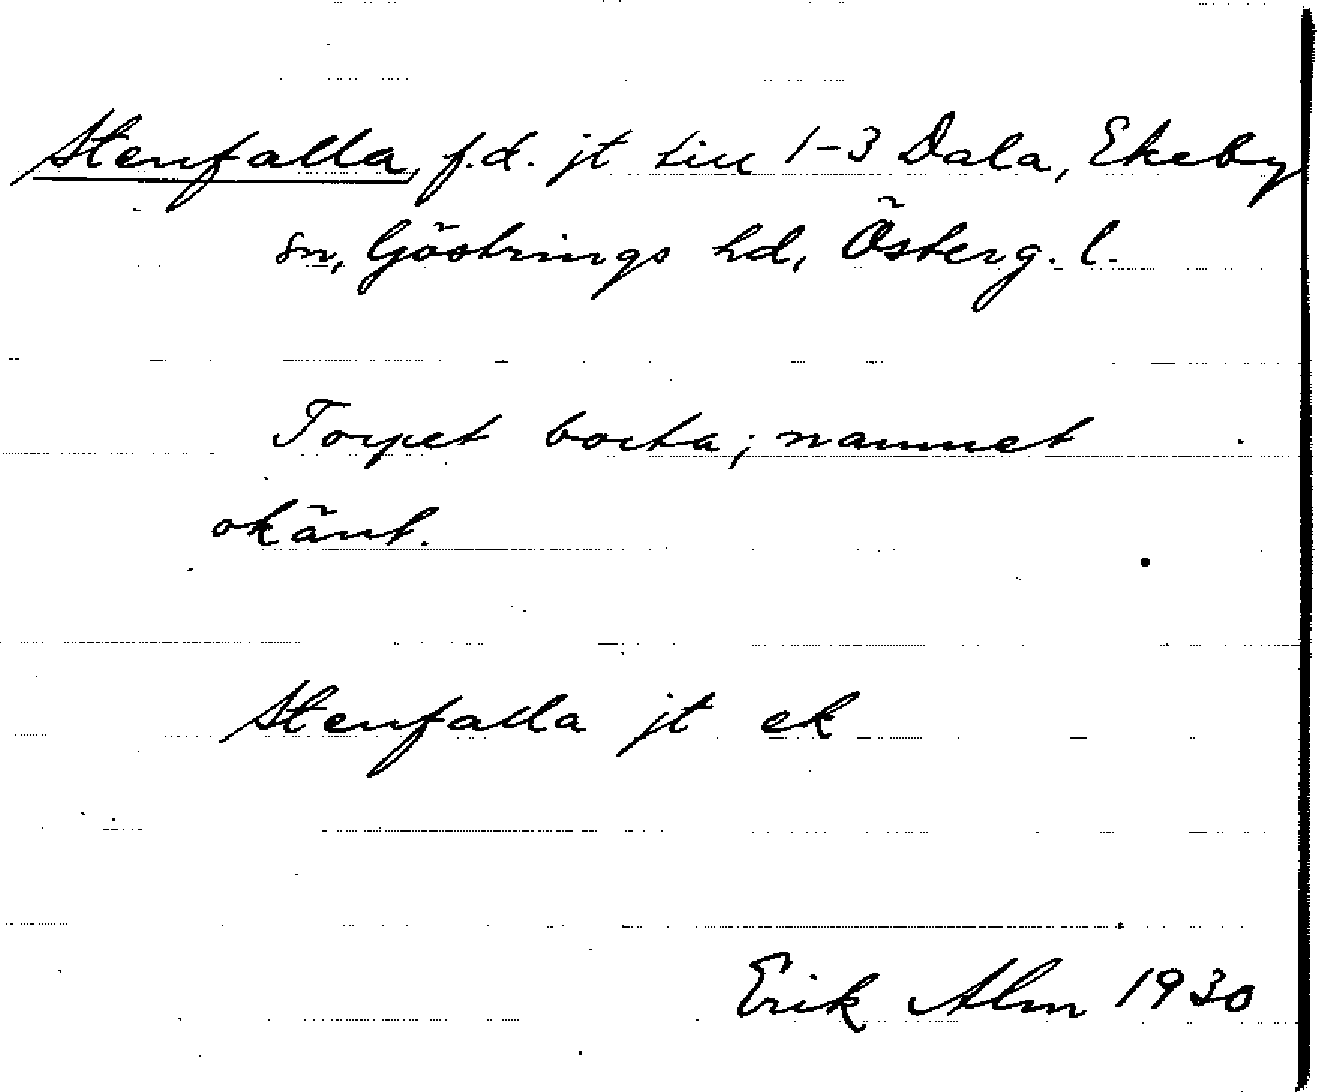 Stenfalla, f.d. jt till 1-3 Dala, Ekeby
sn, Göstrings hd, Österg. l.
Torpet borta; namnet
okänt.
Stenfalla jt ek
Erik Alm 1930